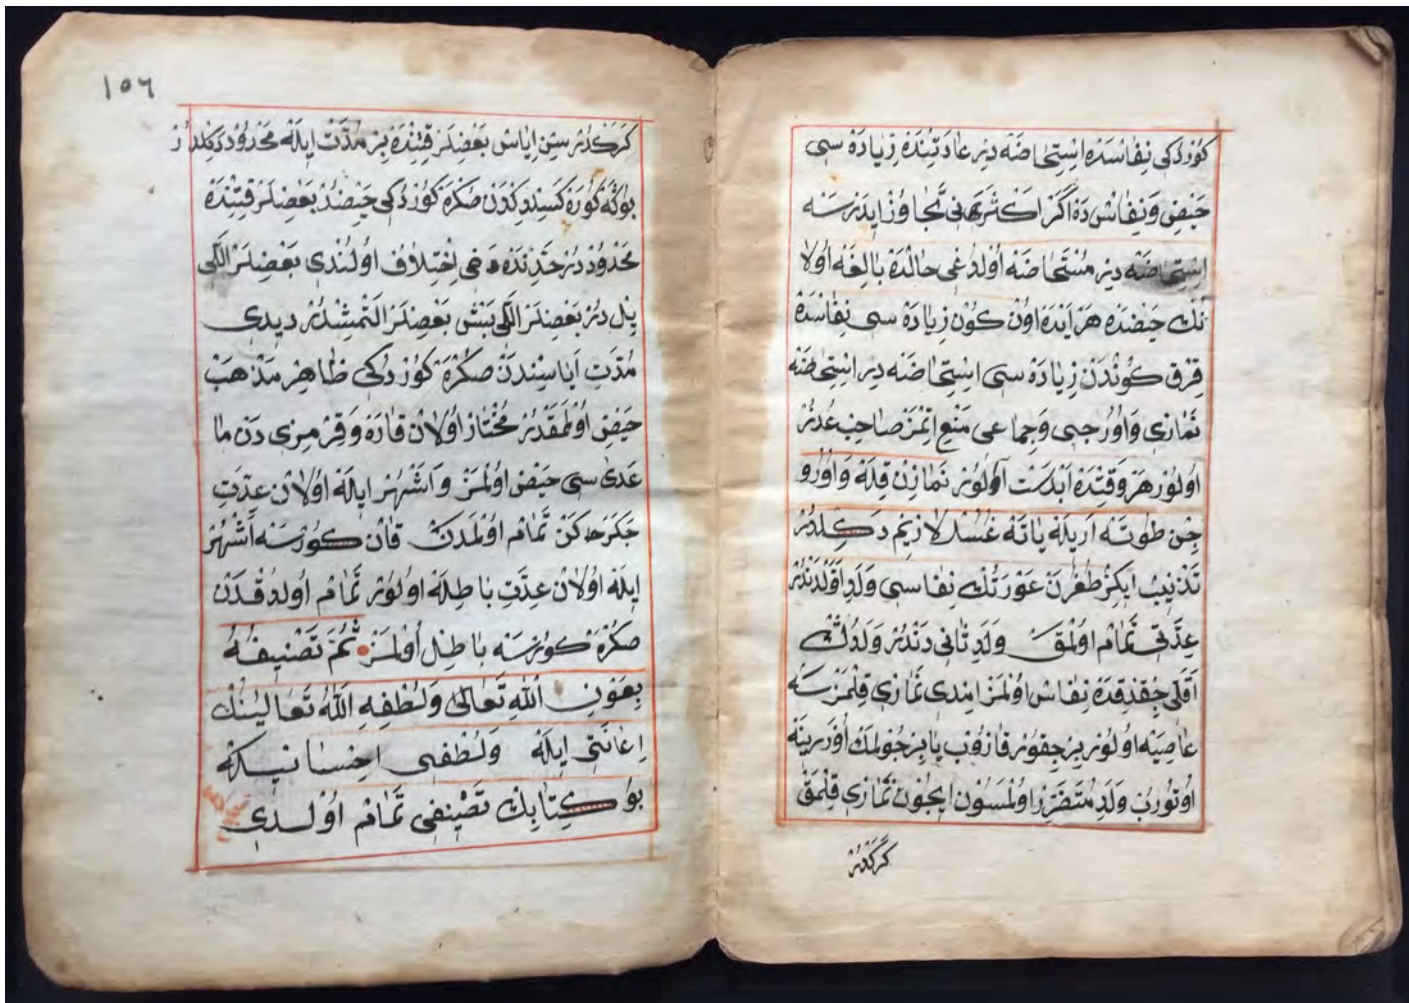 كوردكى نفاسده استحاضه در عادتنده زياده سى
حيض ونفاس ده اكر اكثرى تجاوز ايدرسه
استحاضه در مستحاضه اولدغى حالده بالغه اولا
نك حيضده هر آيده اون كون زياده سى نفاسده
قرق كوندن زياده سى استحاضه در استحاضه
نمازى واورجى وجماعى منع اتمز صاحب عذر
اولور هر وقتده ابدست آلور نمازن قله واورو
جن طوته اريله ياته غسل لازم دكلدر
تذنيب ايكز طغرن عورتك نفاسى ولد اولدندر
عدتى تمام اولمق ولد ثانى دندر ولدك
اقلى چقدقده نفاس اولمز امدى نمازى قلمزسه
عاصيه اولور بر چقور قازوب يا بر چولمك اوزرينه
اوتورب ولد متضرر اولمسون ايچون نمازى قلمق
كركدر
١٥٦
كركدر سن اياس بعضلر قتنده بر مدت ايله محدود دكلدر
بوكه كوره كسلدكدن صكره كوردكى حيضدر بعضلر قتنده
محدوددر حدنده دخى اختلاف اولندى بعضلر اللى
يل در بعضلر اللى بش بعضلر التمشدر ديدى
مدت اياسندن صكره كوردكى ظاهر مذهب
حيض اولمقدر مختار اولان قاره وقرمزى دن ما
عداسى حيض اولمز واشهر ايله اولان عدت
چكرك كن تمام اولمدن قان كورسه اشهر
ايله اولان عدت باطله اولور تمام اولدقدن
صكره كورسه باطل اولمز ثم تصنيفه
بعون الله تعالى ولطفه الله تعالينك
اعانتى ايله ولطفى احسانيله
بو كتابك تصنيفى تمام اولدى